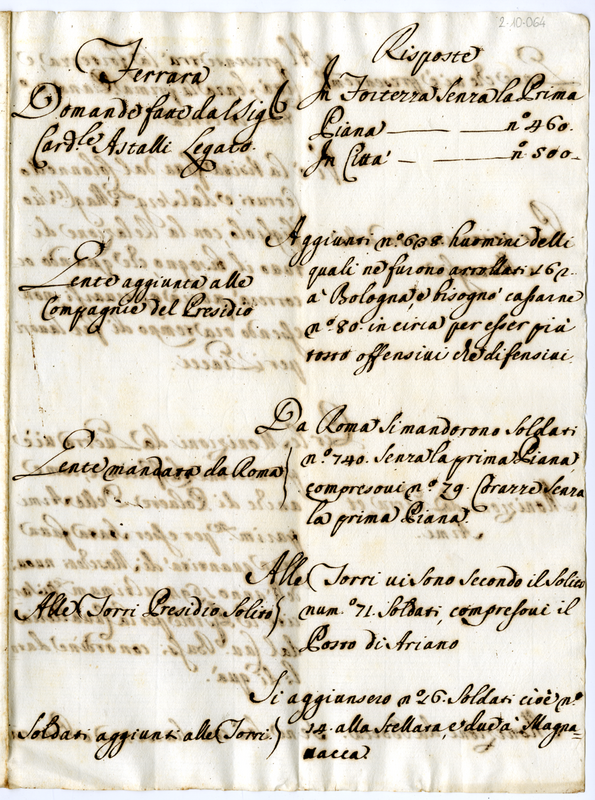 2-10-064
Ferrara
Domande fatte dal Sig.r
Card.le Astalli Legato.
Risposte
In Fortezza senza la Prima
Piana — n.o 460.
In Città — n.o 500
Gente aggiunta alle
Compagnie del Presidio
Aggiunti n.o 638. huomini delli
quali ne furono arrollati 162.
à Bologna, e bisognò cassarne
n.o 80. in circa per esser più
tosto offensivi che difensivi
Gente mandata da Roma
Da Roma si mandorono Soldati
n.o 740. senza la prima Piana
compresovi n.o 79. Corazze senza
la prima Piana.
Alle Torri Presidio Solito
Alle Torri vi sono secondo il solito
num.o 71. Soldati, compresovi il
Posto di Ariano
Soldati aggiunti alle Torri.
Si aggiunsero n.o 26. Soldati cioè n.o
14. alla Stellara, e due à Magna=
vacca.